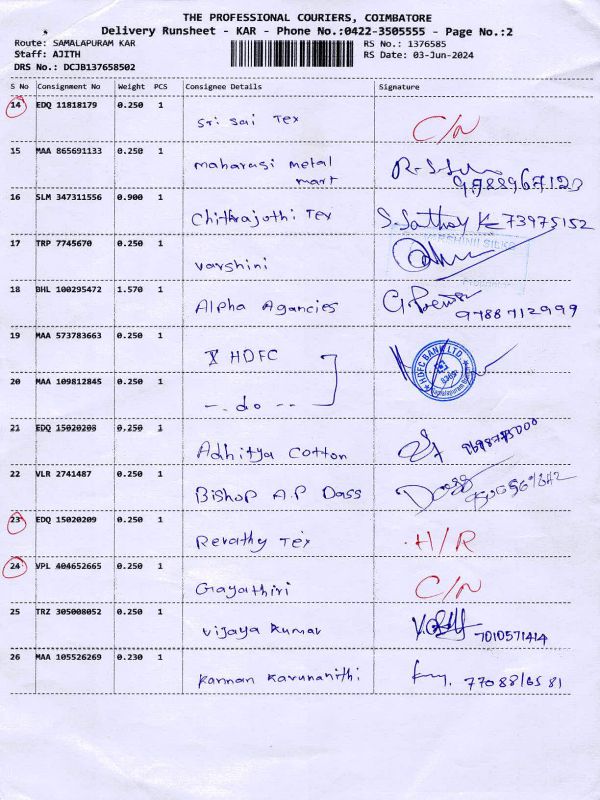 THE PROFESSIONAL COURIERS, COIMBATORE
Delivery Runsheet - KAR - Phone No.:0422-3505555 - Page No.:2
Route: SAMALAPURAM KAR RS No.: 1376585
Staff: AJITH RS Date: 03-Jun-2024
DRS No.: DCJB137658502
S No Consignment No Weight PCS Consignee Details Signature
14 EDQ 11818179 0.250 1
Sri Sai Tex C/N
15 MAA 865691133 0.250 1
maharasi metal
mart 9788967120
16 SLM 347311556 0.900 1
Chithrajothi Tex 73975152
17 TRP 7745670 0.250 1
varshini
18 BHL 100295472 1.570 1
Alpha Agancies 9788712999
19 MAA 573783663 0.250 1
HDFC HDFC BANK LTD
20 MAA 109812845 0.250 1
-- do --
21 EDQ 15020208 0.250 1
Adhitya Cotton
22 VLR 2741487 0.250 1
Bishop A.P Dass
23 EDQ 15020209 0.250 1
Revathy Tex H/R
24 VPL 404652665 0.250 1
Gayathiri C/N
25 TRZ 305008052 0.250 1
Vijaya Kumar 7010571414
26 MAA 105526269 0.230 1
Kannan Karunanithi 77088/6581